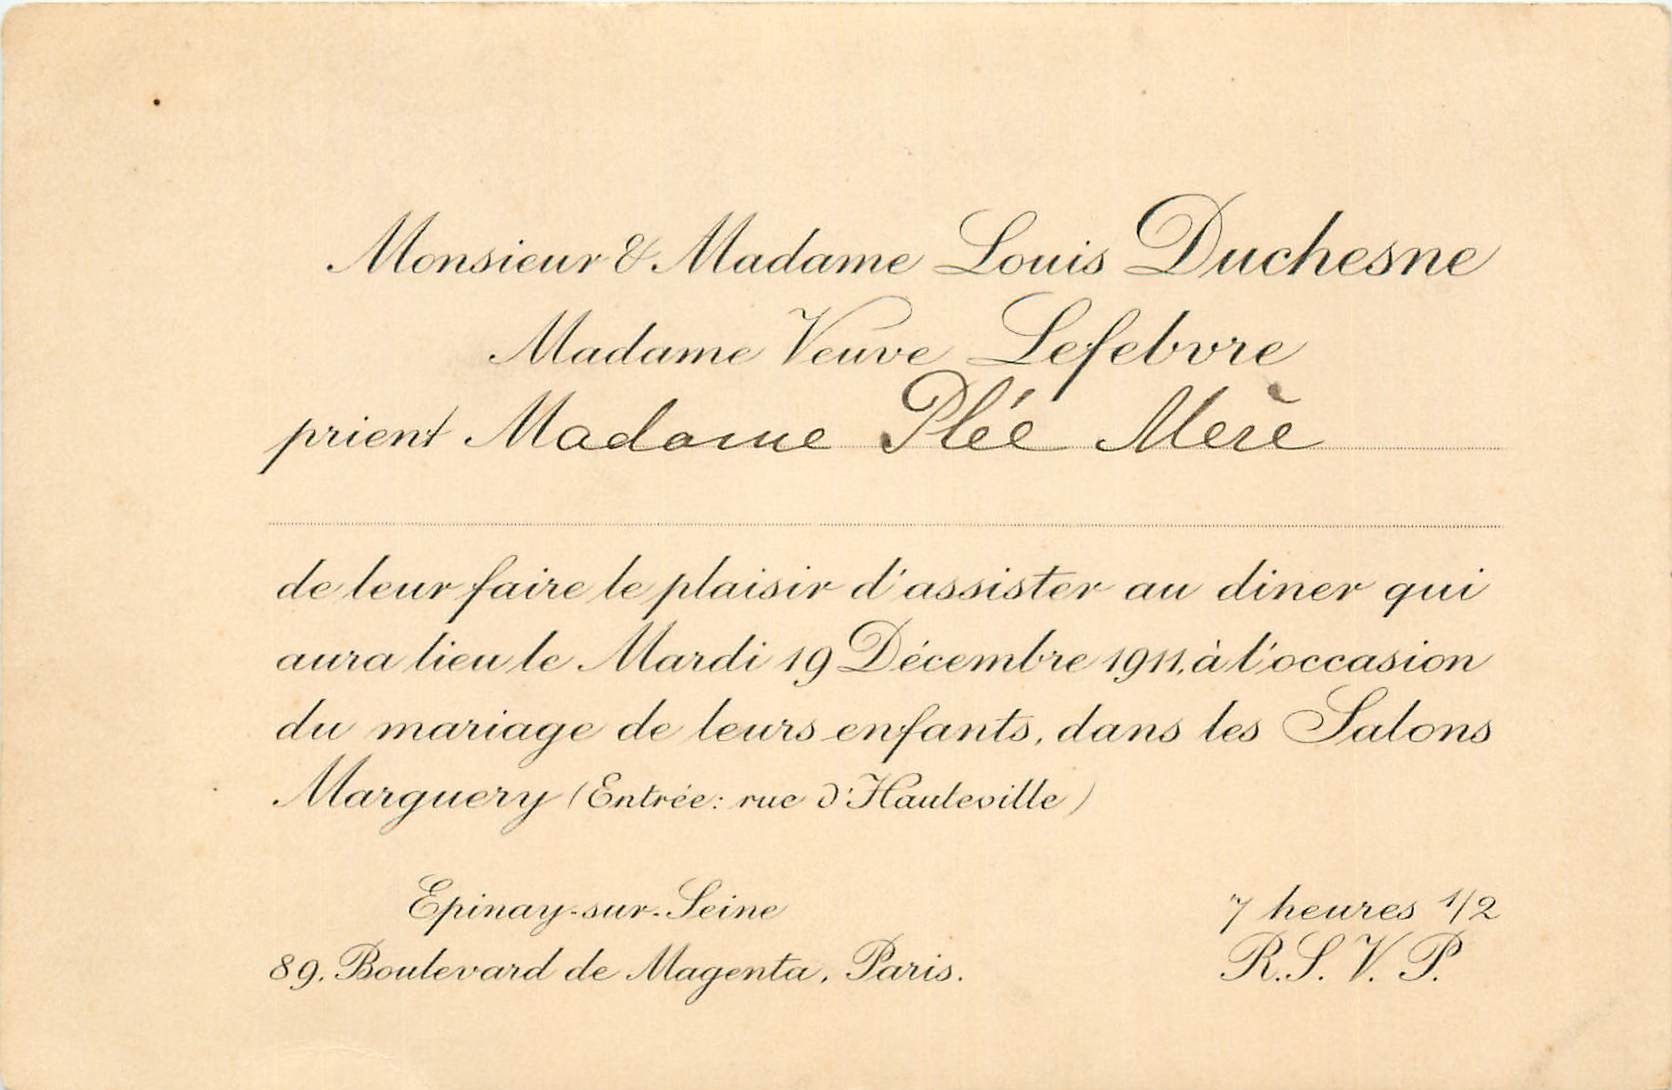 Monsieur & Madame Louis Duchesne
Madame Veuve Lefebvre
prient Madame Plée Mère
de leur faire le plaisir d'assister au diner qui
aura lieu le Mardi 19 Décembre 1911, à l'occasion
du mariage de leurs enfants, dans les Salons
Marguery (Entrée: rue d'Hauteville)
Epinay-sur-Seine
89, Boulevard de Magenta, Paris.
7 heures 1/2
R.S.V.P.